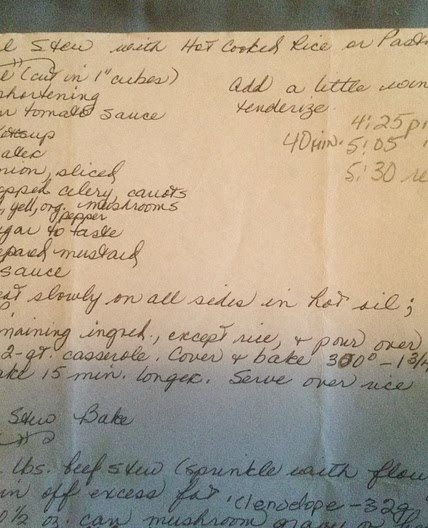 Stew with Hot Cooked Rice or Pasta
(cut in 1" cubes)
shortening
tomato sauce
onion, sliced
celery, carrots
yell, org. mushrooms
pepper
to taste
mustard
sauce
Add a little
tenderize.
4:25
40 min. 5:05
5:30
slowly on all sides in hot oil;
ingred., except rice, & pour over
2-qt. casserole. Cover & bake 300° - 1 3/4
15 min. longer. Serve over rice
Stew Bake
lbs. beef stew (sprinkle with
off excess fat 1 envelope - 32g
1/2 oz. can mushroom